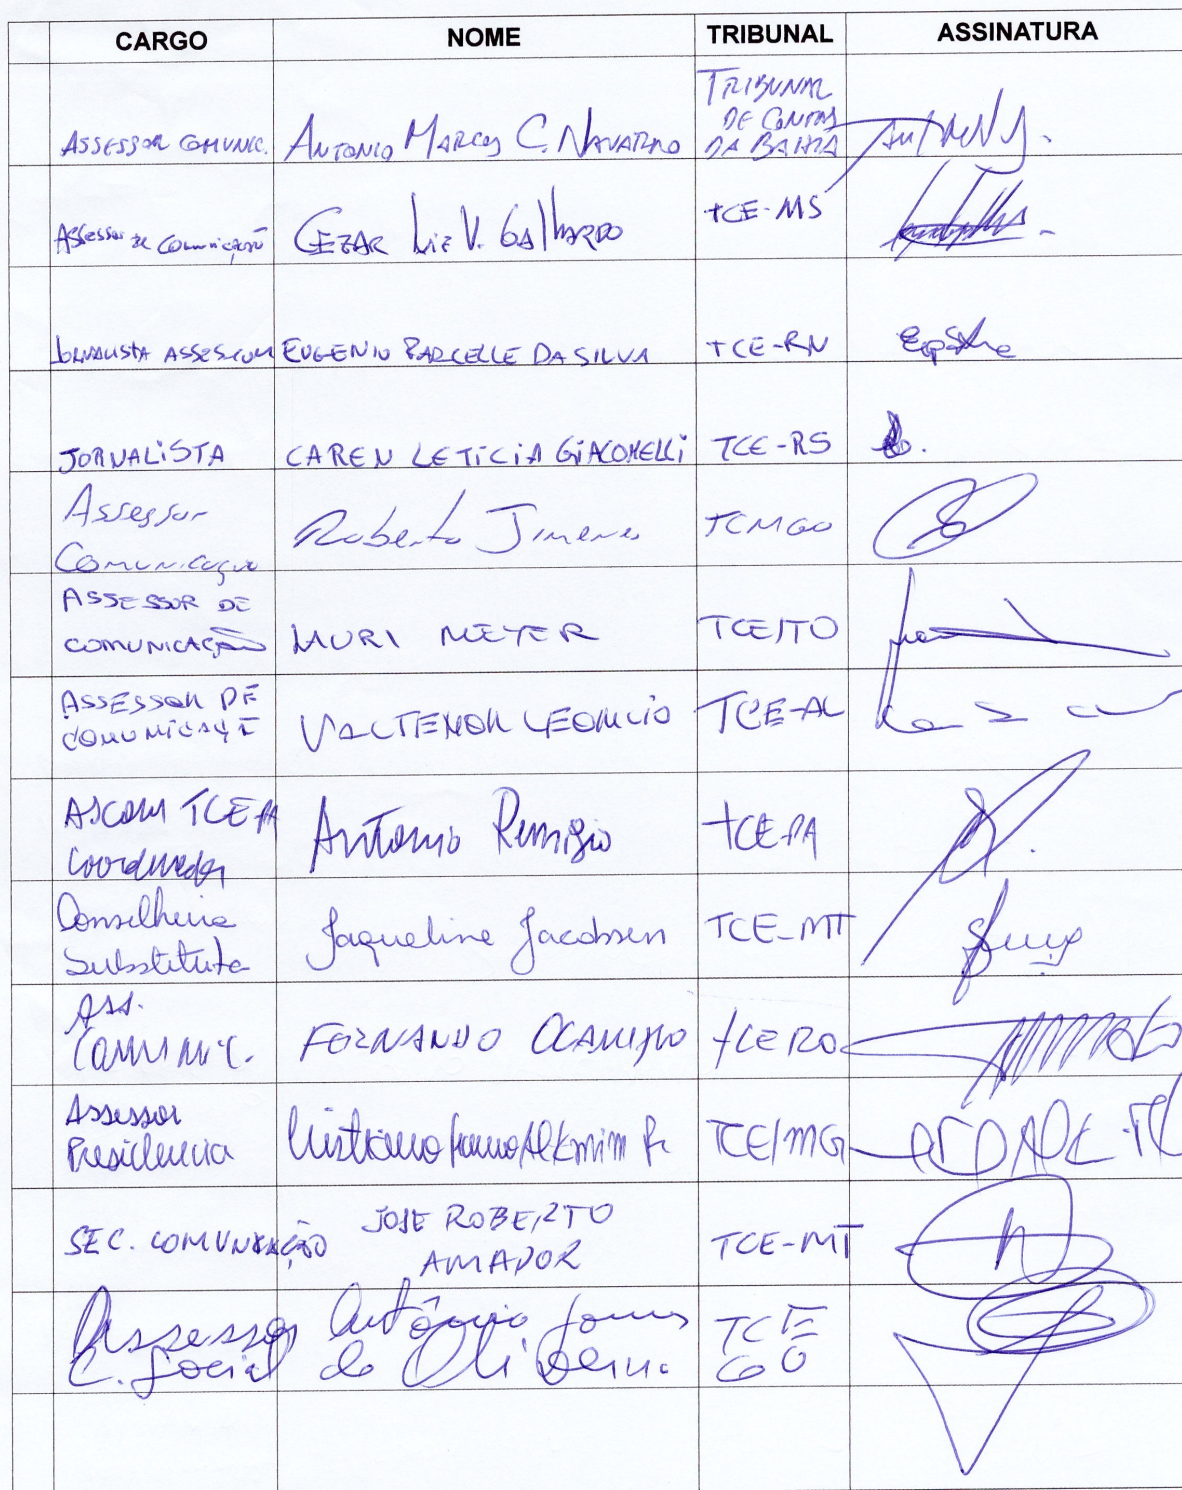 CARGO NOME TRIBUNAL ASSINATURA
ASSESSOR COMUNIC. ANTONIO MARCOS C. NAVARRO TRIBUNAL
DE CONTAS
DA BAHIA
Assessor de Comunicação CEZAR Luiz V. GALHARDO TCE-MS
JORNALISTA ASSESCOM EUGENIO PARCELLE DA SILVA TCE-RN
JORNALISTA CAREN LETICIA GIACOMELLI TCE-RS
Assessor
Comunicação Roberto Jimenes TCMGO
ASSESSOR DE
COMUNICAÇÃO MEYER TCE/TO
ASSESSOR DE
VALTENOR LEONCIO TCE-AL
ASCOM TCE-PA
Coordenador Antonio Remigio TCE-PA
Conselheira
Substituta Jaqueline Jacobsen TCE-MT
Ass.
Comunic. FERNANDO OCAMPO TCERO
Assessor
Presidencia TCE/MG
SEC. COMUNICAÇÃO JOSE ROBERTO
AMADOR TCE-MT
Assessor Antônio Gomes TCE
C. Social de Oliveira GO